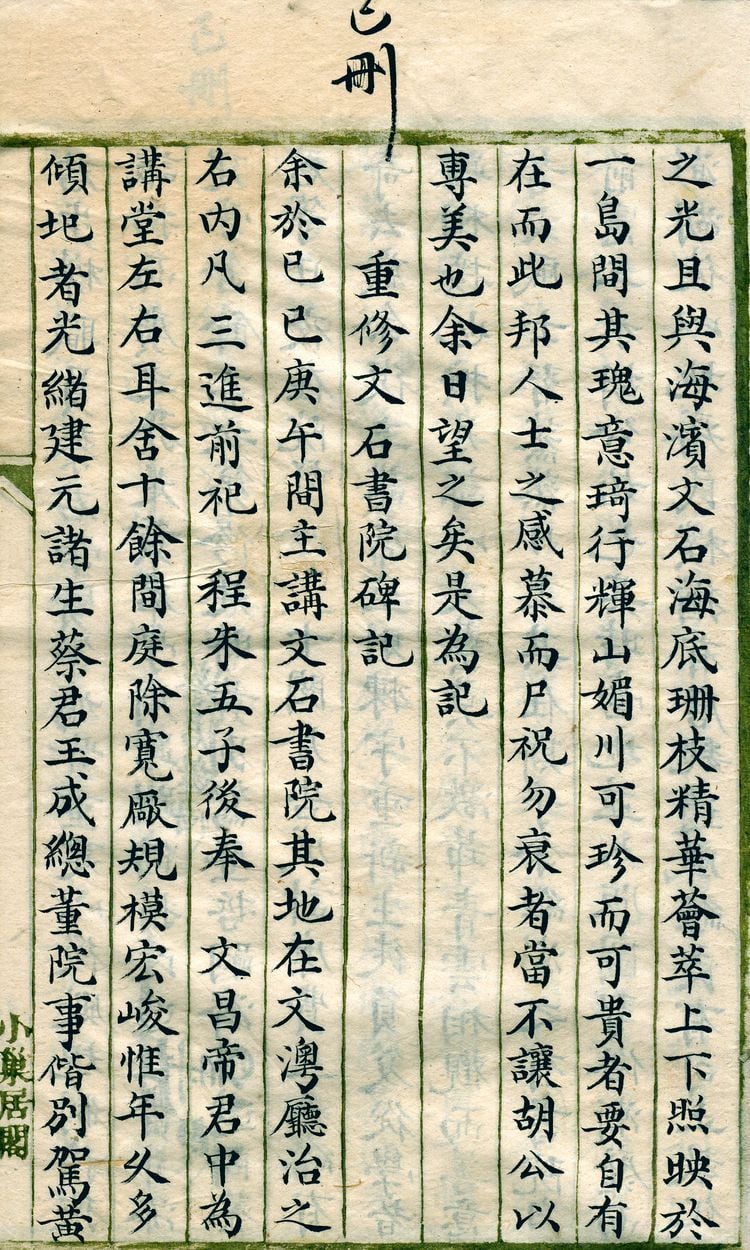 已刪
之光且與海濱文石海底珊枝精華薈萃上下照映於
一島間其瑰意琦行輝山媚川可珍而可貴者要自有
在而此邦人士之感慕而尸祝勿衰者當不讓胡公以
專美也余日望之矣是為記
重修文石書院碑記
余於己巳庚午間主講文石書院其地在文澳廳治之
右內凡三進前祀 程朱五子後奉 文昌帝君中為
講堂左右耳舍十餘間庭除寬厰規模宏峻惟年久多
傾圯者光緒建元諸生蔡君玉成總董院事偕別駕黃
小巢居閣